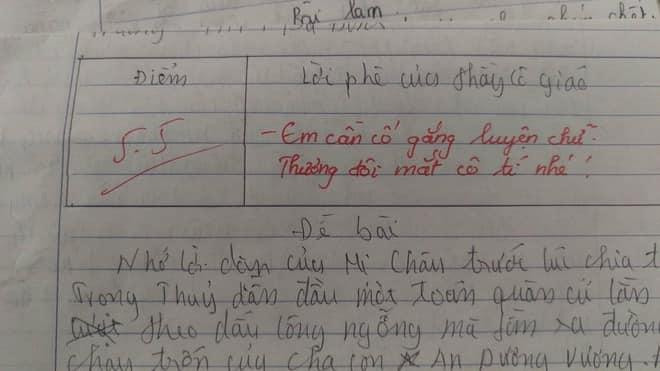 Bài làm
nhất.
Điểm
Lời phê của thầy cô giáo
5.5
- Em cần cố gắng luyện chữ.
Thương đôi mắt cô tí nhé!
Đề bài
Nhớ lời dặn của Mị Châu trước lúc chia t
Trọng Thuỷ dẫn đầu một toán quân cứ lần
theo dấu lông ngỗng mà tìm ra đườn
chạy trốn của cha con An Dương Vương.